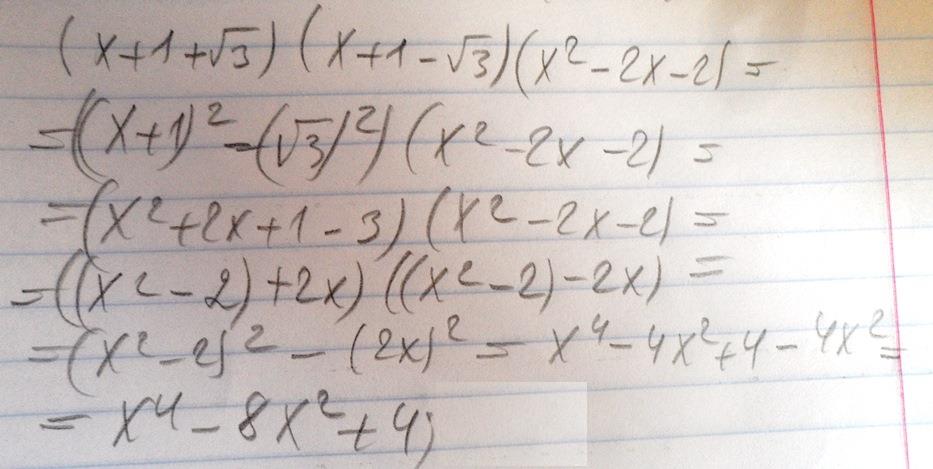 (x+1+√3)(x+1-√3)(x²-2x-2)=
=((x+1)²-(√3)²)(x²-2x-2)=
=(x²+2x+1-3)(x²-2x-2)=
=((x²-2)+2x)((x²-2)-2x)=
=(x²-2)²-(2x)²=x⁴-4x²+4-4x²=
=x⁴-8x²+4;